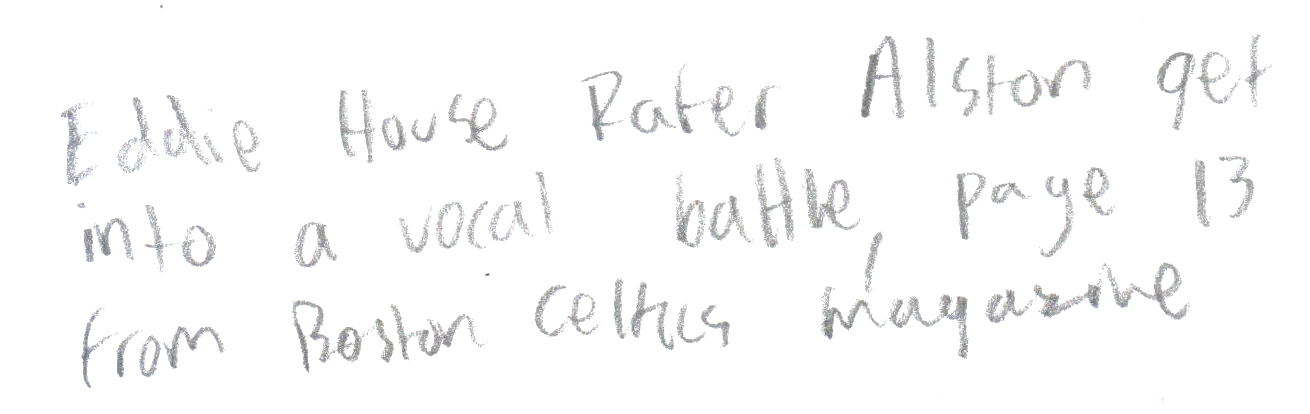 Eddie House Rafer Alston get
into a vocal battle, page 13
from Boston Celtics magazine